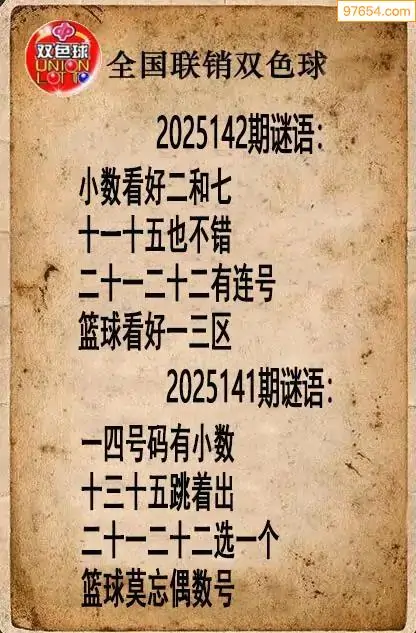 97654.com
双色球
UNION
LOTTO
全国联销双色球
2025142期谜语:
小数看好二和七
十一十五也不错
二十一二十二有连号
篮球看好一三区
2025141期谜语:
一四号码有小数
十三十五跳着出
二十一二十二选一个
篮球莫忘偶数号